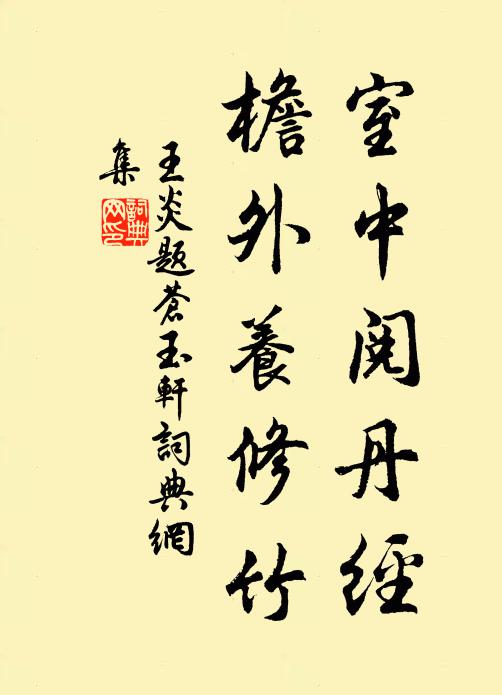 室中閱丹經
檐外養修竹
王炎題蒼玉軒詞典網
集
詞典網印